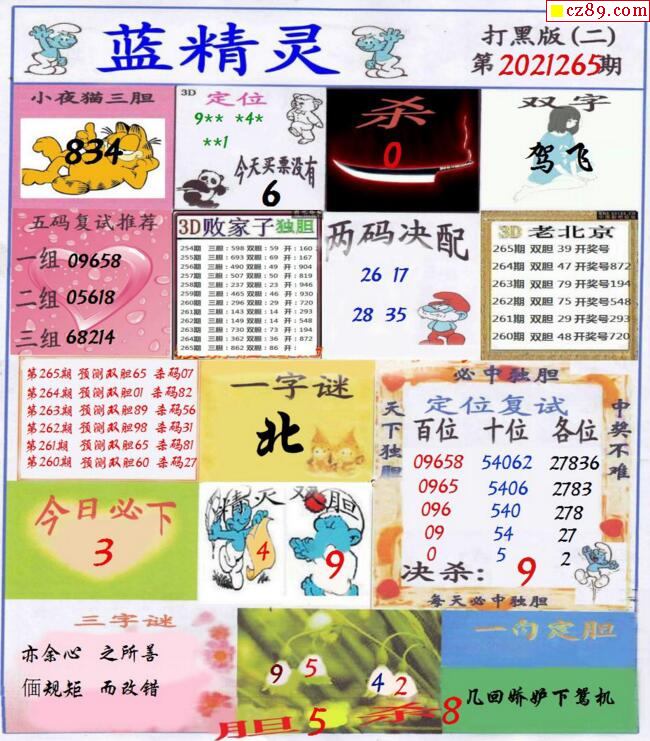 cz89.com
蓝精灵
打黑版(二)
第2021265期
小夜猫三胆
834
3D
定位
9** *4*
**1
今天买票没有
6
杀
0
双字
驾飞
五码复试推荐
一组 09658
二组 05618
三组 68214
3D败家子独胆
254期 三胆：598 双胆：59 开：160
255期 三胆：693 双胆：69 开：167
256期 三胆：490 双胆：49 开：904
257期 三胆：507 双胆：50 开：819
258期 三胆：237 双胆：23 开：946
259期 三胆：465 双胆：46 开：930
260期 三胆：296 双胆：29 开：720
261期 三胆：143 双胆：14 开：293
262期 三胆：149 双胆：14 开：548
263期 三胆：730 双胆：73 开：194
264期 三胆：362 双胆：36 开：872
265期 三胆：862 双胆：86 开：
两码决配
26 17
28 35
3D 老北京
265期 双胆 39 开奖号
264期 双胆 47 开奖号872
263期 双胆 79 开奖号194
262期 双胆 75 开奖号548
261期 双胆 29 开奖号293
260期 双胆 48 开奖号720
第265期 预测双胆65 杀码07
第264期 预测双胆01 杀码82
第263期 预测双胆89 杀码56
第262期 预测双胆98 杀码31
第261期 预测双胆65 杀码81
第260期 预测双胆60 杀码27
一字谜
北
必中独胆
天下独胆
中奖不难
定位复试
百位 十位 各位
09658 54062 27836
0965 5406 2783
096 540 278
09 54 27
0 5 2
决杀：9
每天必中独胆
今日必下
3
精灵双胆
4
9
三字谜
亦余心 之所善
偭规矩 而改错
9 5 4 2
胆5 杀8
一句定胆
几回娇妒下鸳机